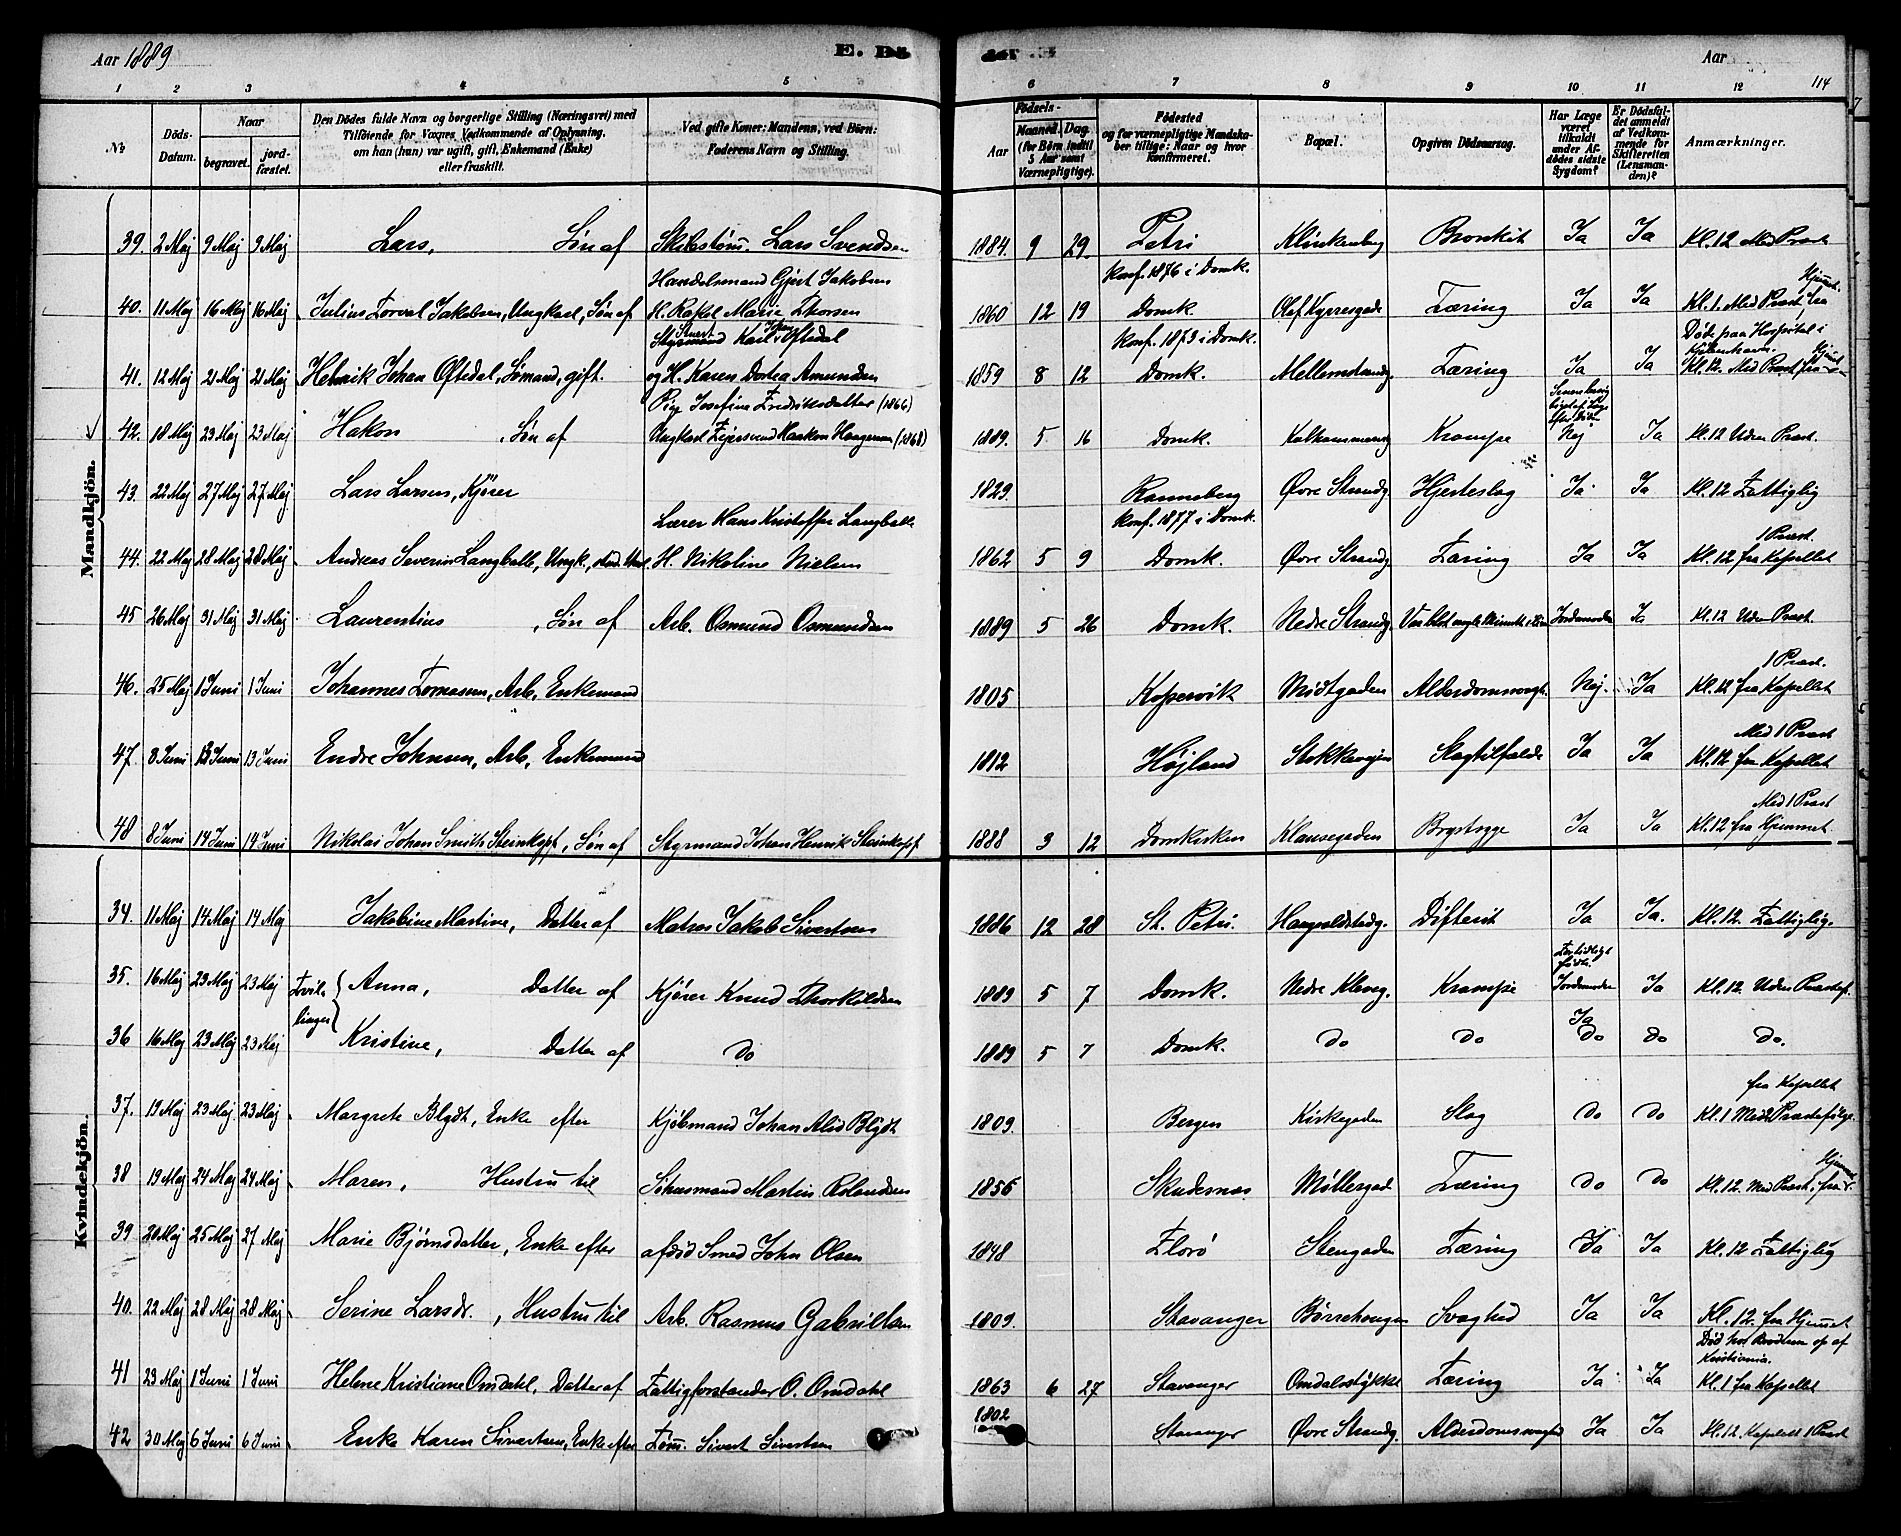 Aar 1889
E. Dö
Aar
114
1 2 3 4 5 6 7 8 9 10 11 12
No
Döds-Datum.
Naar begravet. jordfæstet.
Den Dödes fulde Navn og borgerlige Stilling (Næringsvei) med Tilföiende for Voxnes Vedkommende af Oplysning, om han (hun) var ugift, gift, Enkemand (Enke) eller fraskilt.
Ved gifte Koner: Mandens, ved Börn: Faderens Navn og Stilling.
Födsels-
Aar
Maaned. Dag. (for Börn indtil 5 Aar samt Værnepligtige).
Födested og for værnepligtige Mandskaber tillige: Naar og hvor konfirmeret.
Bopæl.
Opgiven Dödsaarsag.
Har Læge været tilkaldt under Afdödes sidste Sygdom?
Er Dödsfaldet anmeldt af Vedkommende for Skifteretten (Lensmanden)?
Anmærkninger.
Mandkjön.
39. 2 Maj 9 Maj 9 Maj Lars, Søn af Skibstøm. Lars Svendsen 1884. 9 29. Petri Klinkenberg Bronkit Ja Ja Kl. 12 Med Præst
Handelsmand Gjert Jakobsen Konf. 1876 i Domk. Hjemmet.
40. 11 Maj 16 Maj 16 Maj Julius Torval Jakobsen, Ungkarl, Søn af H. Rakel Marie Thorsen 1860 12 19 Domk. Olaf Kyrresgade Tæring Ja Ja Kl. 1. Med Præst fra
Styrmand Karl Johan Oftedal Konf. 1873 i Domk. Døde paa Hospital i Kjøbenhavn.
41. 12 Maj 21 Maj 21 Maj Henrik Johan Oftedal, Sømand, gift. og H. Karen Dortea Amundsen 1859 8 12 Domk. Mellemstrandg. Tæring Ja Ja Kl. 12. Med Præst fra Hjemmet
Pige Josefine Fredriksdatter (1866)
42. 18 Maj 23 Maj 23 Maj Hakon, Søn af Ungkarl Sigersund Haakon Haagensen (1868) 1889. 5 16 Domk. Kalhammerv. Krampe Nej Ja Kl. 12 Uden Præst.
43. 22 Maj 27 Maj 27 Maj Lars Larsen, Kjører 1829. Ranneberg Øvre Strandg. Hjerteslag Ja Ja Kl. 12 Fattiglig
Lærer Hans Kristoffer Langballe Konf. 1877 i Domk. 1 Præst.
44. 22 Maj 28 Maj 28 Maj Andreas Severin Langballe, Ungk., H. Nikoline Nielsen 1862 5 9 Domk. Øvre Strandg. Tæring Ja Ja Kl. 12 fra Kapellet
45 26 Maj 31 Maj 31 Maj Laurentius, Søn af Arb. Osmund Osmundsen 1889 5 26 Domk. Nedre Strandg. Jordemoder Ja Kl. 12 Uden Præst.
1 Præst.
46. 25 Maj 1 Juni 1 Juni Johannes Tomasen, Arb., Enkemand 1805 Kopervik Midtgaden Alderdomssvagh. Nej. Ja Kl. 12 fra Kapellet
Med 1 Præst
47. 8 Juni 13 Juni 13 Juni Endre Johnsen, Arb., Enkemand 1812 Højland Stokkavejen Slagtilfælde Ja Ja Kl. 12 fra Kapellet
Med 1 Præst
48 8 Juni 14 Juni 14 Juni Nikolai Johan Smith Steinkopf, Søn af Styrmand Johan Henrik Steinkopf 1888 3 12 Domkirken Klausegaden Brystsyge Ja Ja Kl. 12 fra Hjemmet.
Kvindekjön.
34. 11 Maj 14 Maj 14 Maj Jakobine Martine, Datter af Matros Jakob Sivertsen 1886 12 28 St. Petri. Haugvaldstadg. Difterit Ja Ja. Kl. 12. Fattiglig.
For tidligt født.
35. 16 Maj 23 Maj 23 Maj Tvillinger Anna, Datter af Kjører Knud Thorkildsen 1889 5 7 Domk. Nedre Klevg. Krampe Jordemoder Ja Ja Kl. 12. Uden Præstef.
36 16 Maj 23 Maj 23 Maj Kristine, Datter af do 1889 5 7 Domk. do do do do do.
fra Kapellet
37. 19 Maj 23 Maj. 23 Maj. Margrete Blydt, Enke efter Kjøbmand Johan Alid Blydt 1809. Bergen Kirkegaden Slag do do Kl. 1 Med Præstefølge.
38 19 Maj 24 Maj 24 Maj Maren, Hustru til Sjøusmand Martin Rolandsen 1856 Skudesnes Møllergad Tæring do do Kl. 12. Med Præst. fra Hjemmet
39 20 Maj 25 Maj 27 Maj Marie Bjørnsdatter, Enke efter afdød Smed John Olsen 1848 Florø Stengaden Tæring Ja Ja Kl. 12 Fattiglig
40. 22 Maj 28 Maj 28 Maj Serine Larsdr., Hustru til Arb. Rasmus Gabrielsen 1809. Stavanger Børrehaugen Svaghed Ja Ja Kl. 12. fra Hjemmet
Død hos Kristiania.
41 23 Maj 1 Juni 1 Juni Helene Kristiane Omdahl, Datter af Fattigforstander O. Omdahl 1863 6 27 Stavanger Omdalsstykke Tæring Ja Ja Kl. 1 fra Kapellet
42 30 Maj 6 Juni 6 Juni Enke Karen Sivertsen, Enke efter Tøm. Sivert Sivertsen 1802 Stavanger Øvre Strandg. Alderdomssvaghed Ja Ja Kl. 12. Kapellet 1 Præst